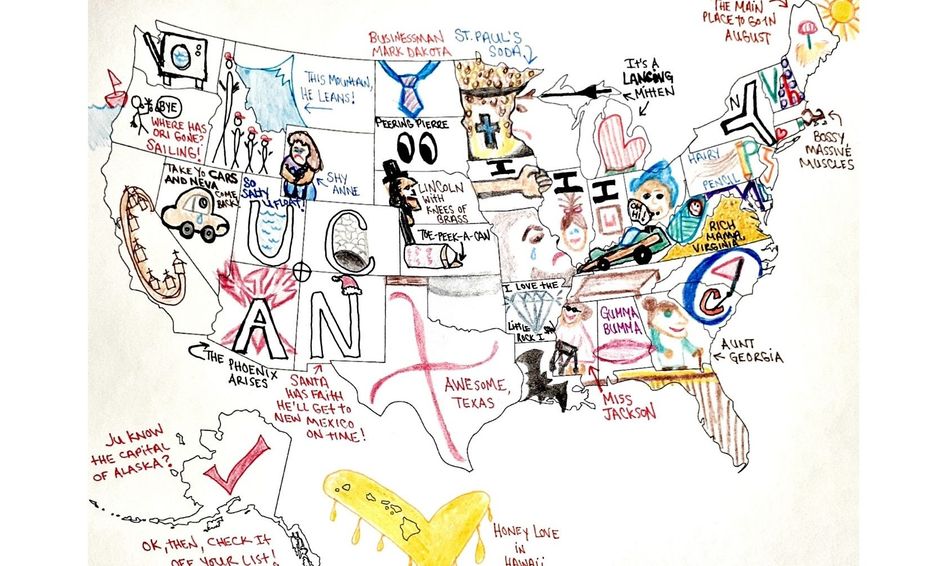 THE MAIN
PLACE TO GO IN
AUGUST
BUSINESSMAN
MARK DAKOTA
ST. PAUL'S
SODA
IT'S A
LANCING
MITTEN
THIS MOUNTAIN,
HE LEANS!
BYE
WHERE HAS
ORI GONE?
SAILING!
PEERING PIERRE
N
V
BOSSY,
MASSIVE
MUSCLES
TAKE YO CARS
AND NEVA
COME
BACK!
SO
SALTY
U FLOAT!
SHY
ANNE
LINCOLN
WITH
KNEES OF
BRASS
I
I
I
OH
HI!
HAIRY
PENCIL
TOE-PEEK-A-CAN
RICH
MAMA
VIRGINIA
U
C
I LOVE THE
LITTLE
ROCK I
GUMMA
BUMMA
C
A
N
AWESOME,
TEXAS
AUNT
GEORGIA
THE PHOENIX
ARISES
SANTA
HAS FAITH
HE'LL GET TO
NEW MEXICO
ON TIME!
MISS
JACKSON
JU KNOW
THE CAPITAL
OF ALASKA?
OK, THEN, CHECK IT
OFF YOUR LIST!
HONEY LOVE
IN
HAWAII